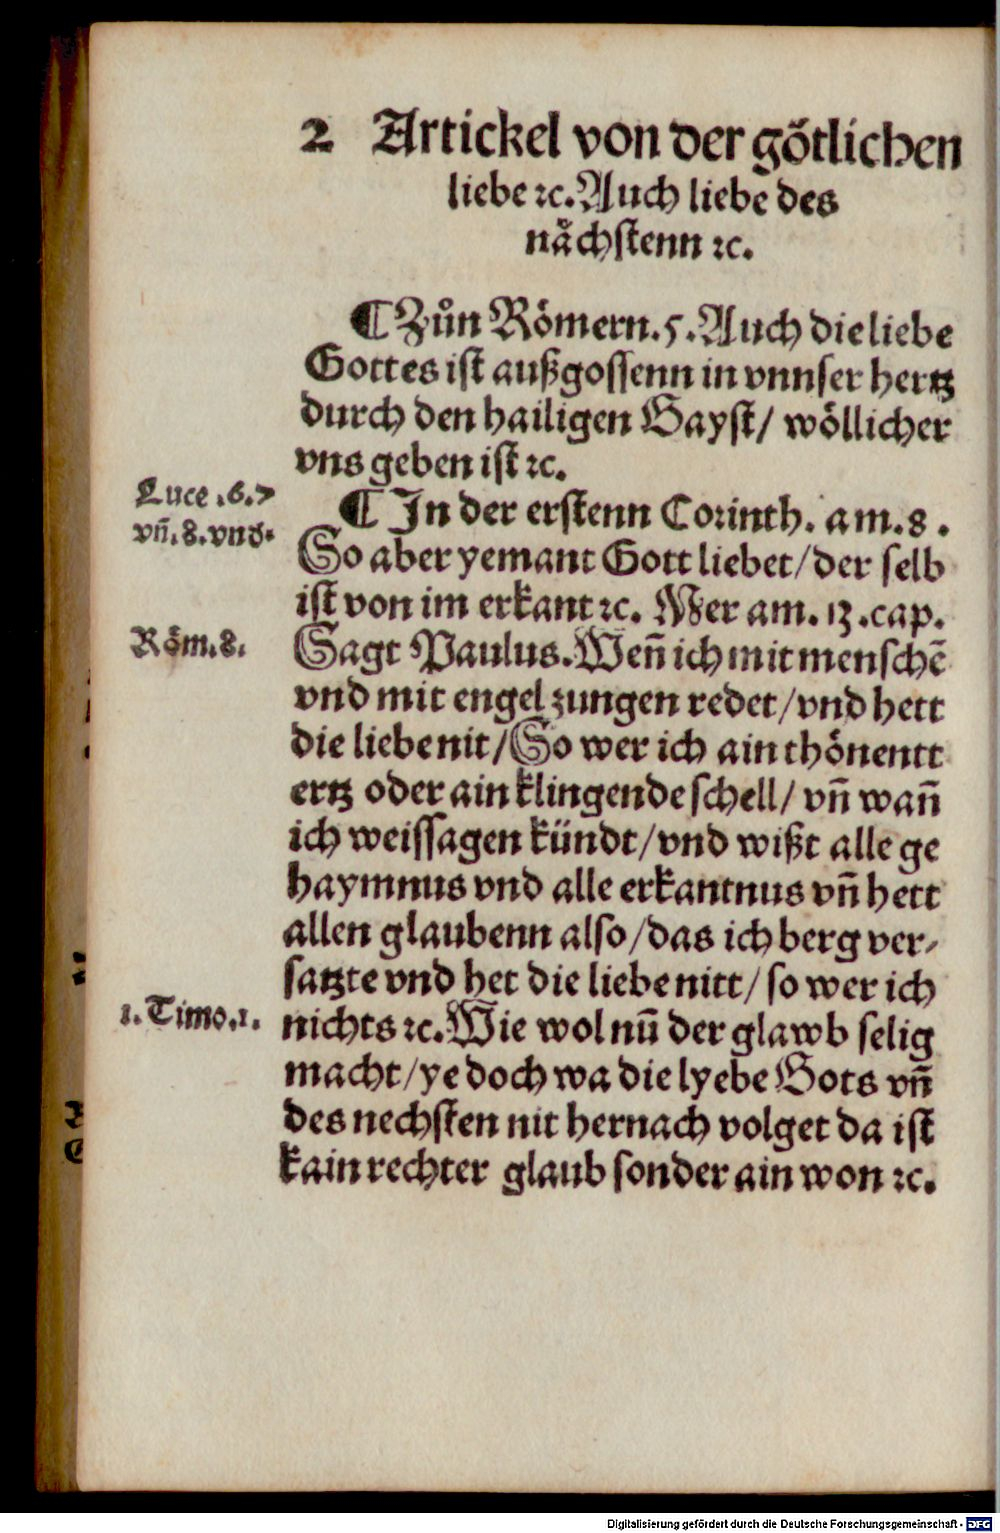 2 Artickel von der götlichen
liebe ꝛc. Auch liebe des
nächstenn ꝛc.
¶ Zůn Römern. 5. Auch die liebe
Gottes ist außgossenn in vnnser hertz
durch den hailigen Gayst/ wöllicher
vns geben ist ꝛc.
Luce .6.7
vñ.8.vnd.
¶ In der erstenn Corinth. am. 8.
So aber yemant Gott liebet/der selb
ist von im erkant ꝛc. Mer am. 13. cap.
Röm.8.
Sagt Paulus. Weñ ich mit menschē
vnd mit engel zungen redet/vnd hett
die liebe nit/So wer ich ain thönentt
ertz oder ain klingende schell/ vñ wañ
ich weissagen kündt/vnd wißt alle ge
haymnus vnd alle erkantnus vñ hett
allen glaubenn also/das ich berg ver-
satzte vnd het die liebe nitt/ so wer ich
1. Timo.1.
nichts ꝛc. Wie wol nū der glawb selig
macht/ye doch wa die lyebe Gots vñ
des nechsten nit hernach volget da ist
kain rechter glaub sonder ain won ꝛc.
Digitalisierung gefördert durch die Deutsche Forschungsgemeinschaft - DFG